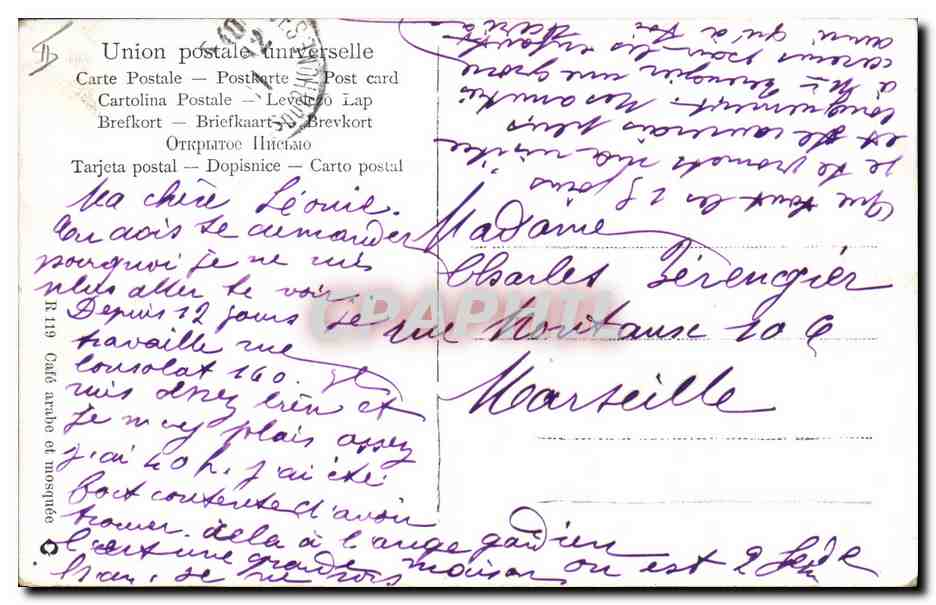 Union postale universelle
Carte Postale — Postkarte — Post card
Cartolina Postale — Levelezo Lap
Brefkort — Briefkaart — Brevkort
Открытое Письмо
Tarjeta postal — Dopisnice — Carto postal
Ma chère Léonie.
Tu dois te demander
pourquoi je ne suis
plus aller te voir
Depuis 12 jours je
travaille rue
Consolat 160.
suis assez bien et
je m'y plais assez
j'ai 40 h. j'ai été
fort contente d'avoir
trouver dela à l'ange gardien
c'est une grande maison ou est 2
je
Que tout les 15 jours
je te promets ma visite
et te causerais plus
longuement. Mes amitiés
à Mr Berengier une grosse
caresse pour les enfants
ainsi qu'à toi
Maria
Madame
Charles Bérengier
rue 10
Marseille
R 119 Café arabe et mosquée
CPAPHIL